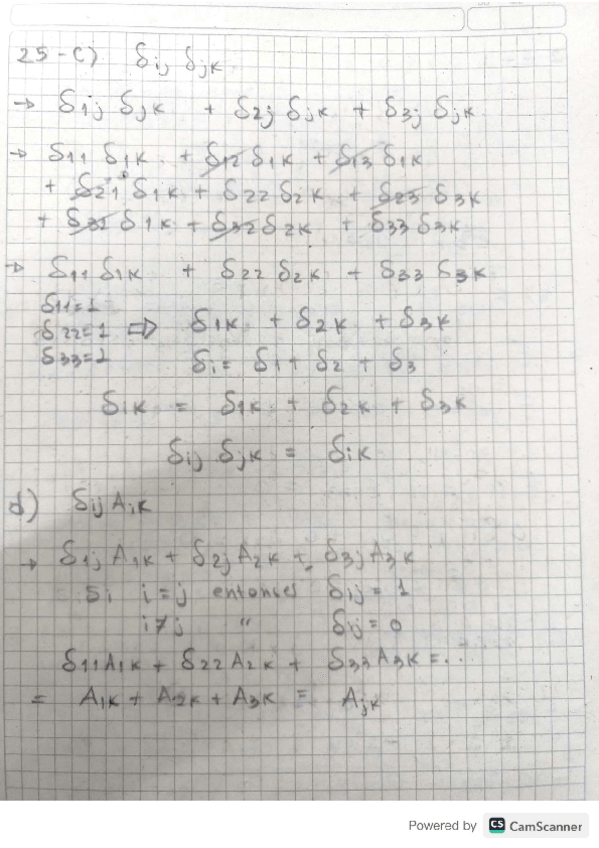 25-c) δij δjk
→ δ1j δjk + δ2j δjk + δ3j δjk
→ δ11 δ1k + δ12 δ1k + δ13 δ1k
+ δ21 δ1k + δ22 δ2k + δ23 δ3k
+ δ32 δ1k + δ32 δ2k + δ33 δ3k
→ δ11 δ1k + δ22 δ2k + δ33 δ3k
δ11=1
δ22=1 ⇒ δ1k + δ2k + δ3k
δ33=1 δi = δ1 + δ2 + δ3
δik = δ1k + δ2k + δ3k
δij δjk = δik
d) δij Aik
→ δ1j A1k + δ2j A2k + δ3j A3k
Si i=j entonces δij = 1
i≠j " δij = 0
δ11A1k + δ22A2k + δ33A3k = ...
= A1k + A2k + A3k = Ajk
Powered by CS CamScanner